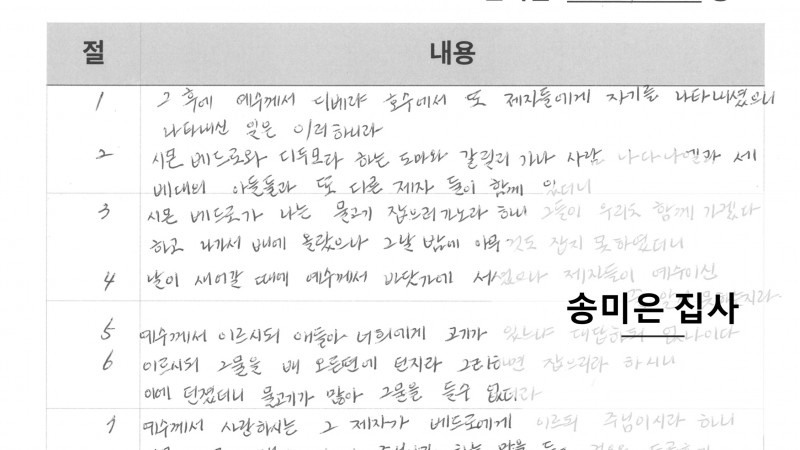 절 내용
1 그 후에 예수께서 디베랴 호수에서 또 제자들에게 자기를 나타내셨으니
나타내신 일은 이러하니라
2 시몬 베드로와 디두모라 하는 도마와 갈릴리 가나 사람 나다나엘과 세
베대의 아들들과 또 다른 제자 둘이 함께 있더니
3 시몬 베드로가 나는 물고기 잡으러 가노라 하니 그들이 우리도 함께 가겠다
하고 나가서 배에 올랐으나 그날 밤에 아무것도 잡지 못하였더니
4 날이 새어갈 때에 예수께서 바닷가에 서셨으나 제자들이 예수이신
송미은 집사
5 예수께서 이르시되 얘들아 너희에게 고기가 있느냐 대답하되 없나이다
6 이르시되 그물을 배 오른편에 던지라 그리하면 잡으리라 하시니
이에 던졌더니 물고기가 많아 그물을 들수 없더라
7 예수께서 사랑하시는 그 제자가 베드로에게 이르되 주님이시라 하니